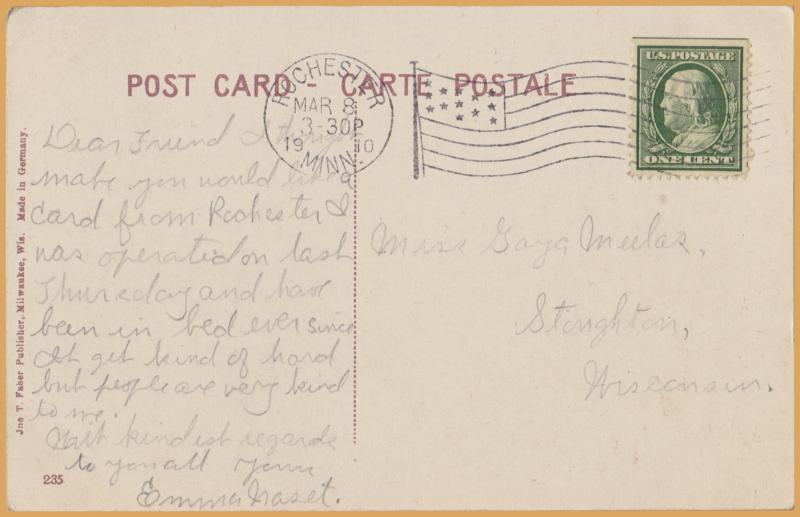 POST CARD - CARTE POSTALE
ROCHESTER
MAR 8
3-30P
1910
MINN.
U.S. POSTAGE
ONE CENT
Dear Friend I
make you would like a
card from Rochester I
was operated on last
Thursday and have
been in bed ever since
It get kind of hard
but people are very kind
to me.
With kindest regards
to you all Your
Emma Naset.
Miss Gaya
Stoughton,
Wisconsin.
Jno T. Faber Publisher, Milwaukee, Wis. Made in Germany.
235